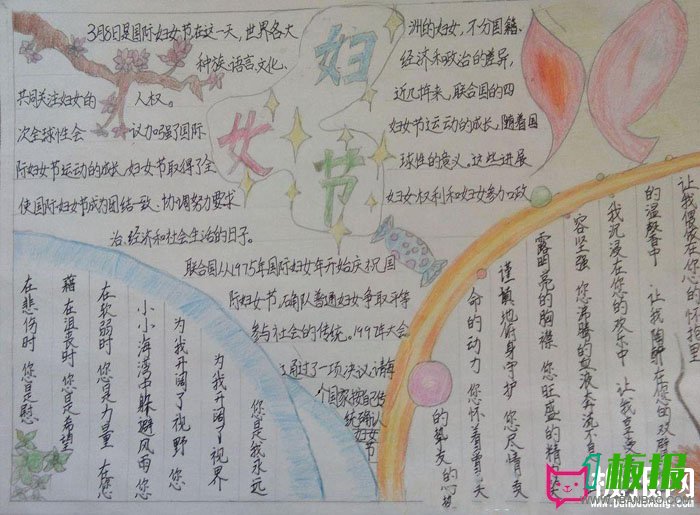 3月8日是国际妇女节在这一天，世界各大
种族、语言、文化、
共同关注妇女的 人权。
次全球性会 议加强了国际
际妇女节运动的成长，妇女节取得了全
使国际妇女节成为团结一致、协调努力要求
治、经济和社会生活的日子。
妇
女
节
洲的妇女，不分国籍、
经济和政治的差异，
近几十年来，联合国的四
妇女节运动的成长，随着国
球性的意义。这些进展
妇女权利和妇女参加政
联合国从1975年国际妇女年开始庆祝国
际妇女节，确认普通妇女争取平等
参与社会的传统。1997年大会
通过了一项决议，请每
个国家按自己传
统确认
妇女节
在悲伤时 您是慰
藉 在沮丧时 您是希望
在软弱时 您是力量 在您
小小海湾中 躲避风雨 您
为我开阔了视野 您
为我开阔了视界
您是我永远
命的动力 您怀着
谨慎地俯身守护 您尽情
露明亮的胸襟 您旺盛的精
容坚强 您沸腾的血液奔流不息
我沉浸在您的欢乐中 让我享受
的温馨中 让我陶醉在您的双臂
让我偎依在您心的怀抱里
板报
WWW.1BANBAO.COM